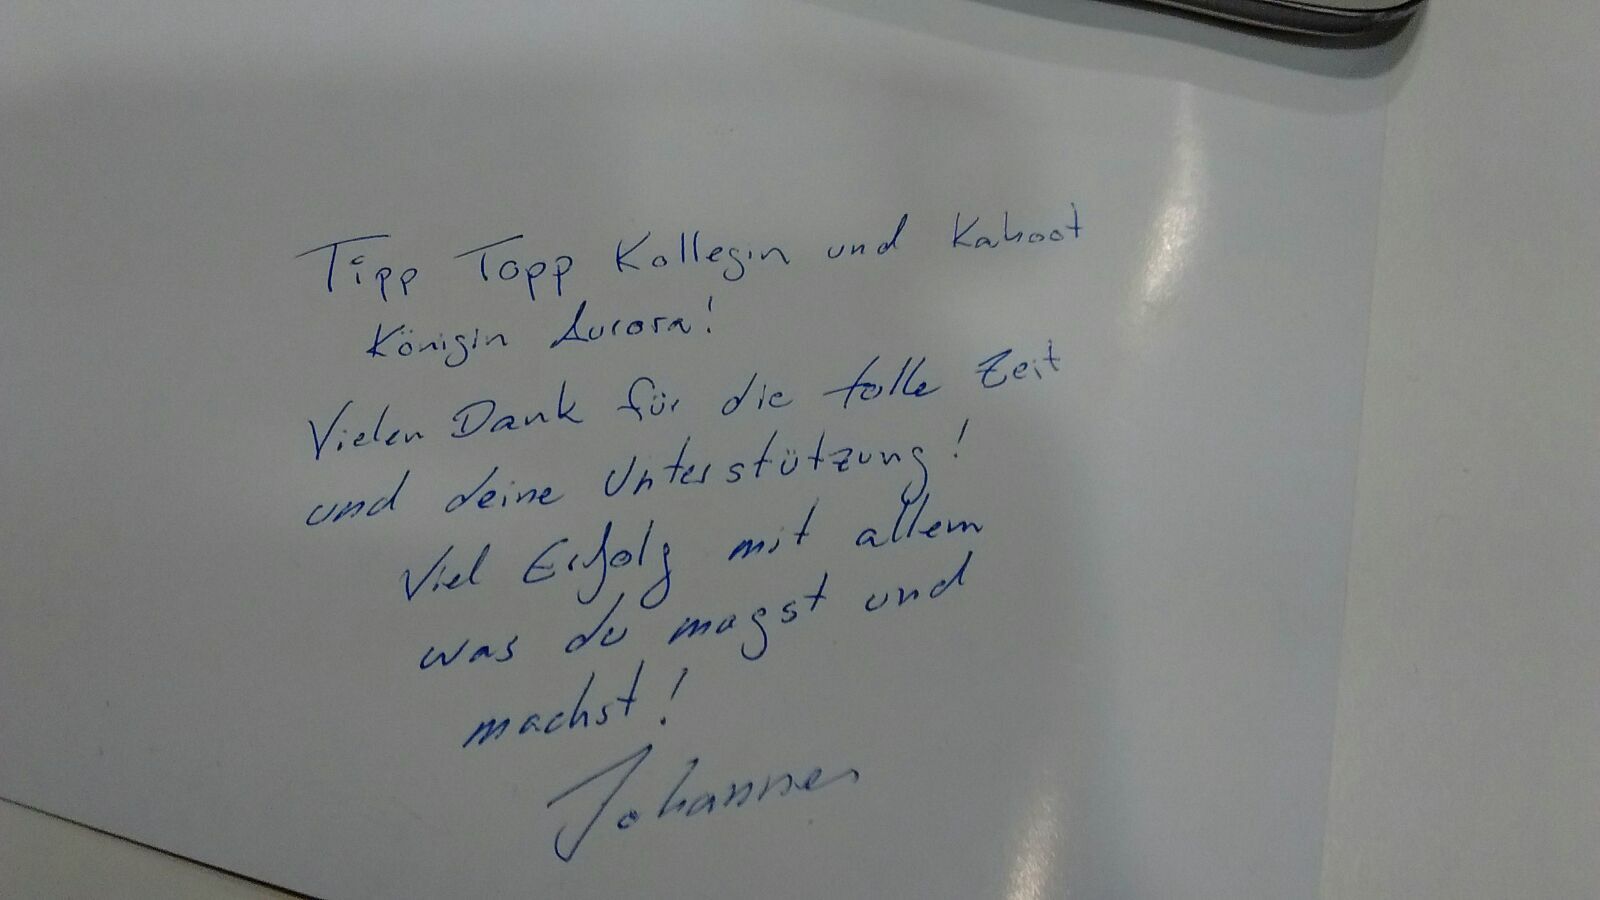 Tipp Topp Kollegin und Kahoot
Königin Aurora!
Vielen Dank für die tolle Zeit
und deine Unterstützung!
Viel Erfolg mit allem
was du magst und
machst!
Johannes